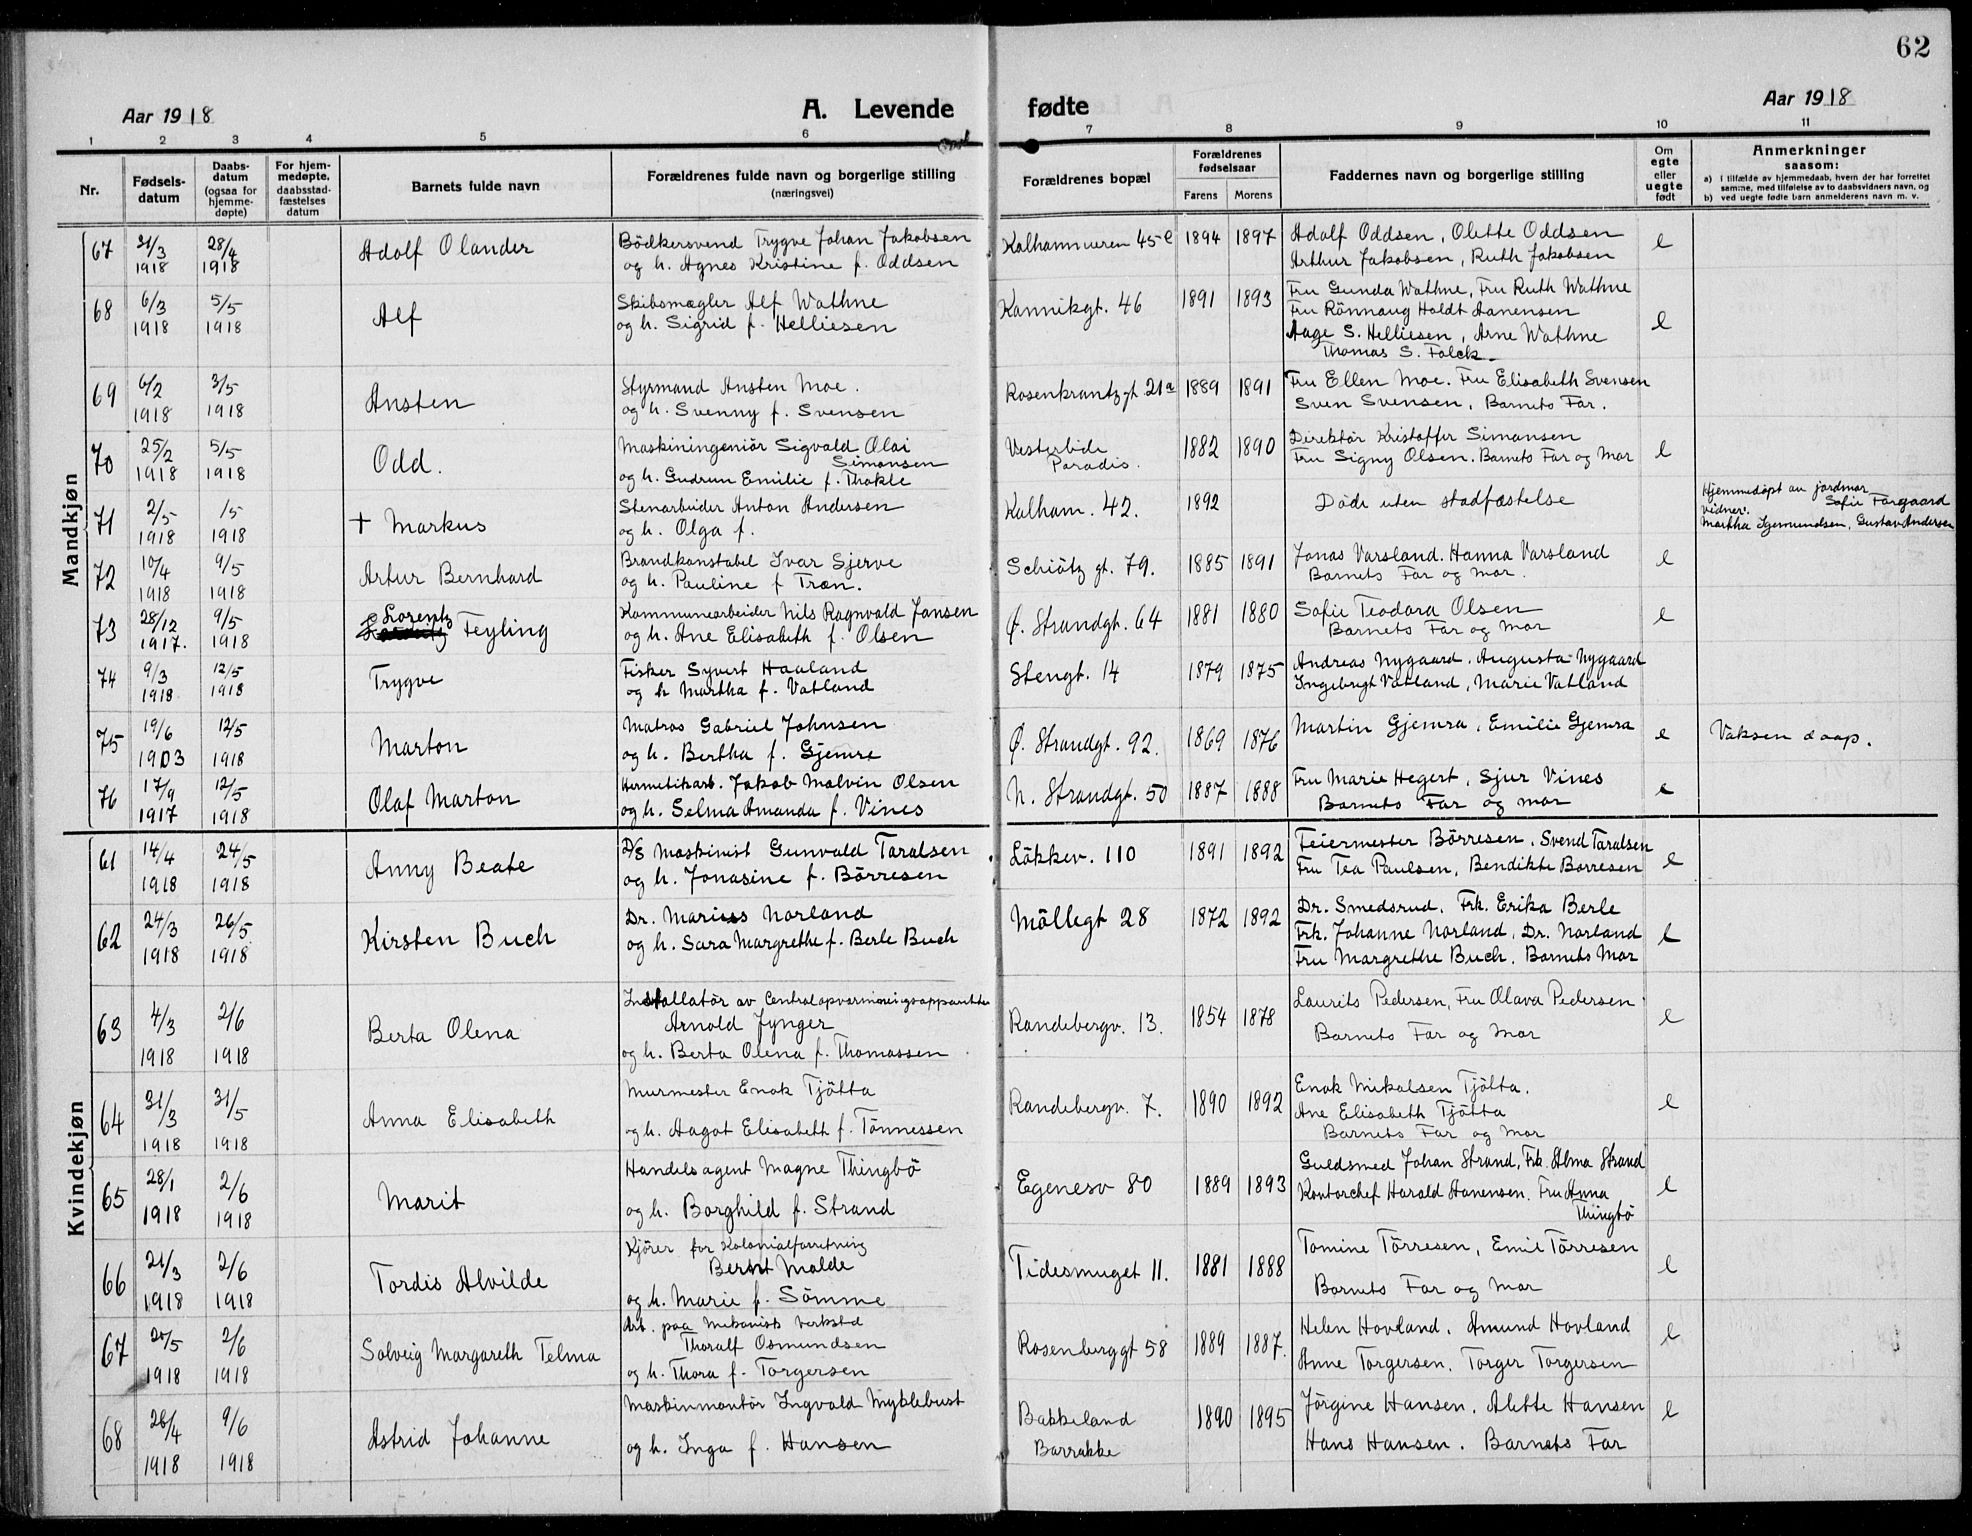 62
Aar 1918
A. Levende
fødte
Aar 1918
1 2 3 4 5 6 7 8 9 10 11
Nr.
Fødsels-
datum
Daabs-
datum
(ogsaa for
hjemme-
døpte)
For hjem-
medøpte,
daabsstad-
fæstelses
datum
Barnets fulde navn
Forældrenes fulde navn og borgerlige stilling
(næringsvei)
Forældrenes bopæl
Forældrenes
fødselsaar
Farens Morens
Faddernes navn og borgerlige stilling
Om
egte
eller
uegte
født
Anmerkninger
saasom:
a) i tilfælde av hjemmedaab, hvem der har forrettet
samme, med tilføielse av to daabsvidners navn, og
b) ved uegte fødte barn anmelderens navn m. v.
Mandkjøn
67 31/3 28/4 Adolf Olander Bödkersvend Trygve Johan Jakobsen Kalhammeren 45 e 1894 1897 Adolf Oddsen, Olette Oddsen e
1918 1918 og h. Agnes Kristine f. Oddsen Arthur Jakobsen, Ruth Jakobsen
68 6/3 5/5 Alf Skibsmægler Alf Wathne Kannikgt. 46 1891 1893 Fru Gunda Wathne, Fru Ruth Wathne
1918 1918 og h. Sigrid f. Helliesen Fru Rönnaug Holdt Aanensen
Aage S. Helliesen, Arne Wathne e
Thomas S. Falck
69 6/2 3/5 Ansten Styrmand Ansten Moe. Rosenkrantzgt. 21a 1889 1891 Fru Ellen Moe. Fru Elisabeth Svensen
1918 1918 og h. Svenny f. Svensen Sven Svensen, Barnets Far.
70 25/2 5/5 Odd. Maskiningeniör Sigvald Olai Vesterbide 1882 1890 Direktör Kristoffer Simonsen e
1918 1918 Simonsen Paradis. Fru Signy Olsen. Barnets Far og Mor
og h. Gudrun Emilie f. Thokle
71 2/5 1/5 † Markus Stenarbeider Anton Andersen Kalham. 42. 1892 Døde uten stadfæstelse Hjemmedöpt av jordmor
1918 1918 og h. Olga f. Sofie Fargaard
vidner:
Martha Sjemundsen, Gustav Andersen
72 10/4 9/5 Artur Bernhard Brandkonstabel Ivar Sjerve Schiötz gt. 79. 1885 1891 Jonas Varsland. Hanna Varsland e
1918 1918 og h. Pauline f Træn. Barnets Far og Mor.
73 28/12 9/5 Lorentz Feyling Kommunearbeider Nils Ragnvald Jansen Ø. Strandgt. 64 1881 1880 Sofie Teodora Olsen e
1917. 1918 og h. Ane Elisabeth f. Olsen Barnets Far og Mor
74 9/3 12/5 Trygve Fisker Syvert Haaland Stengt. 14 1879 1875 Andreas Nygaard, Augusta Nygaard
1918 1918 og h Martha f. Vatland Ingebrigt Vatland, Marie Vatland
75 19/6 12/5 Marton Matros Gabriel Johnsen Ø. Strandgt. 92. 1869 1876 Martin Gjemra, Emilie Gjemra e Vaksen daap.
1903 1918 og h. Bertha f. Gjemre
76 17/9 12/5 Olaf Marton Hermetikarb. Jakob Malvin Olsen N. Strandgt. 50 1887 1888 Fru Marie Hegert, Sjur Vines e
1917 1918 og h. Selma Amanda f. Vines Barnets Far og Mor
Kvindekjøn
61 14/4 24/5 Anny Beate D/S Maskinist Gunvald Taralsen Lökkev. 110 1891 1892 Feiermester Börresen, Svend Taralsen e
1918 1918 og h. Jonasine f. Börresen Fru Tea Paulsen, Bendikte Borresen
62 24/3 26/5 Kirsten Buch Dr. Marius Norland Möllegt 28 1872 1892 Dr. Smedsrud, Frk. Erika Berle
1918 1918 og h. Sara Margrethe f. Berle Buch Frk. Johanne Norland, Dr. Norland e
Fru Margrethe Buch. Barnets Mor
63 4/3 2/6 Berta Olena Installatör av Centralopvarmningsapparater Randebergv. 13. 1854 1878 Laurits Pedersen, Fru Olava Pedersen e
1918 1918 Arnold Jynger Barnets Far og Mor
og h. Berta Olena f. Thomassen
64 31/3 31/5 Anna Elisabeth Murmester Enok Tjötta Randebergv. 7. 1890 1892 Enok Mikalsen Tjötta. e
1918 1918 og h. Aagot Elisabeth f. Tönnessen Ane Elisabeth Tjötta
Barnets Far og Mor
65 28/1 2/6 Marit Handelsagent Magne Thingbö Egenesv 80 1889 1893 Guldsmed Johan Strand, Frk. Alma Strand e
1918 1918 og h. Borghild f. Strand Kontorchef Harald Aanensen. Fru Anna
Thingbö
66 21/3 2/6 Tordis Alvilde Kjörer for Kolonialforretning Tidesmuget 11. 1881 1888 Tomine Törresen, Emil Törresen e
1918 1918 Bernt Molde Barnets Far og Mor
og h. Marie f. Sömme
67 20/5 2/6 Solveig Margareth Telma Arb. paa Mekanisk Verksted Rosenberggt 58 1889 1887. Helen Hovland, Amund Hovland e
1918 1918 Thoralf Osmundsen Anne Torgersen, Torger Torgersen
og h. Thora f. Torgersen
68 26/4 9/6 Astrid Johanne Maskinmontör Ingvald Myklebust Bakkeland 1890 1895 Jörgine Hansen, Alette Hansen e
1918 1918 og h. Inga f. Hansen Barrakke Hans Hansen. Barnets Far